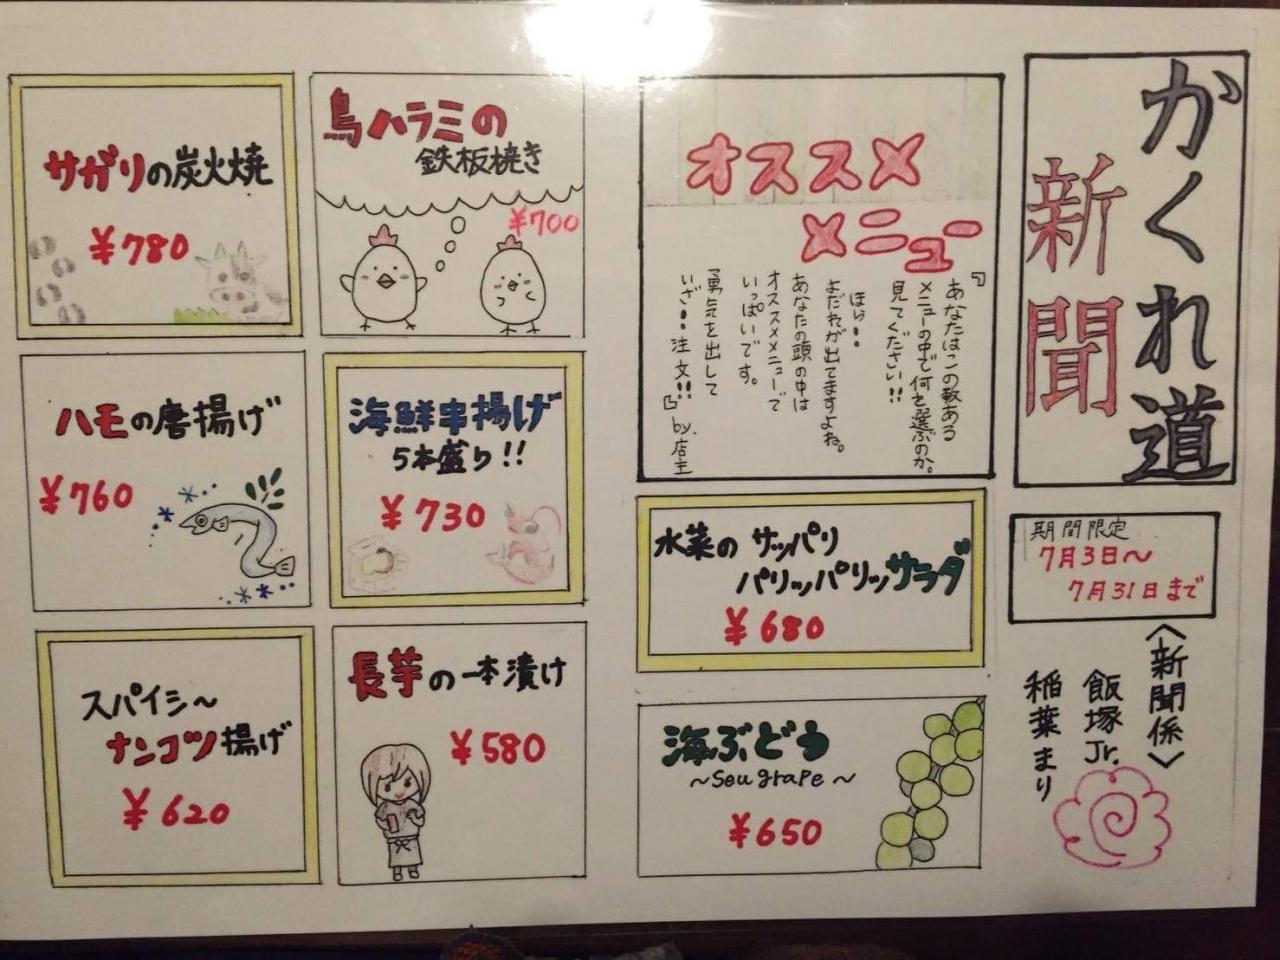 かくれ道
新聞
期間限定
7月3日～
7月31日まで
〈新聞係〉
飯塚Jr.
稲葉まり
オススメ
メニュー
『あなたはこの数ある
メニューの中で何を選ぶのか。
見てください!!
ほら!!
よだれが出てますよね。
あなたの頭の中は
オススメメニューで
いっぱいです。
勇気を出して
いざ!!注文!!』by.店主
水菜のサッパリ
パリッパリッサラダ
¥680
海ぶどう
～Seu grape～
¥650
鳥ハラミの
鉄板焼き
¥700
サガリの炭火焼
¥780
海鮮串揚げ
5本盛り!!
¥730
ハモの唐揚げ
¥760
長芋の一本漬け
¥580
スパイシ～
ナンコツ揚げ
¥620